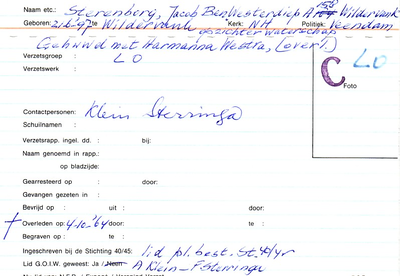 Naam etc.: Sterenberg, Jacob Ben Westerdiep A 104 Wildervank
Geboren: 21-6-97 te Wildervank Kerk: NH Politiek: Veendam
opzichter waterschap
Gehuwd met Harmanna Westra, (overl.)
Verzetsgroep : LO
Verzetswerk :
C LO
Foto
Contactpersonen: Klein Sterringa
Schuilnamen :
Verzetsrapp. ingel. dd. : bij:
Naam genoemd in rapp.:
op bladzijde:
Gearresteerd op : door:
Gevangen gezeten in :
Bevrijd op : uit : door:
Overleden op: 4-10-'64 door: te :
Begraven op : te :
Ingeschreven bij de Stichting 40/45: lid pl. best. St. 40/45
Lid G.O.I.W. geweest: Ja / Neen A Klein - F Sterringa